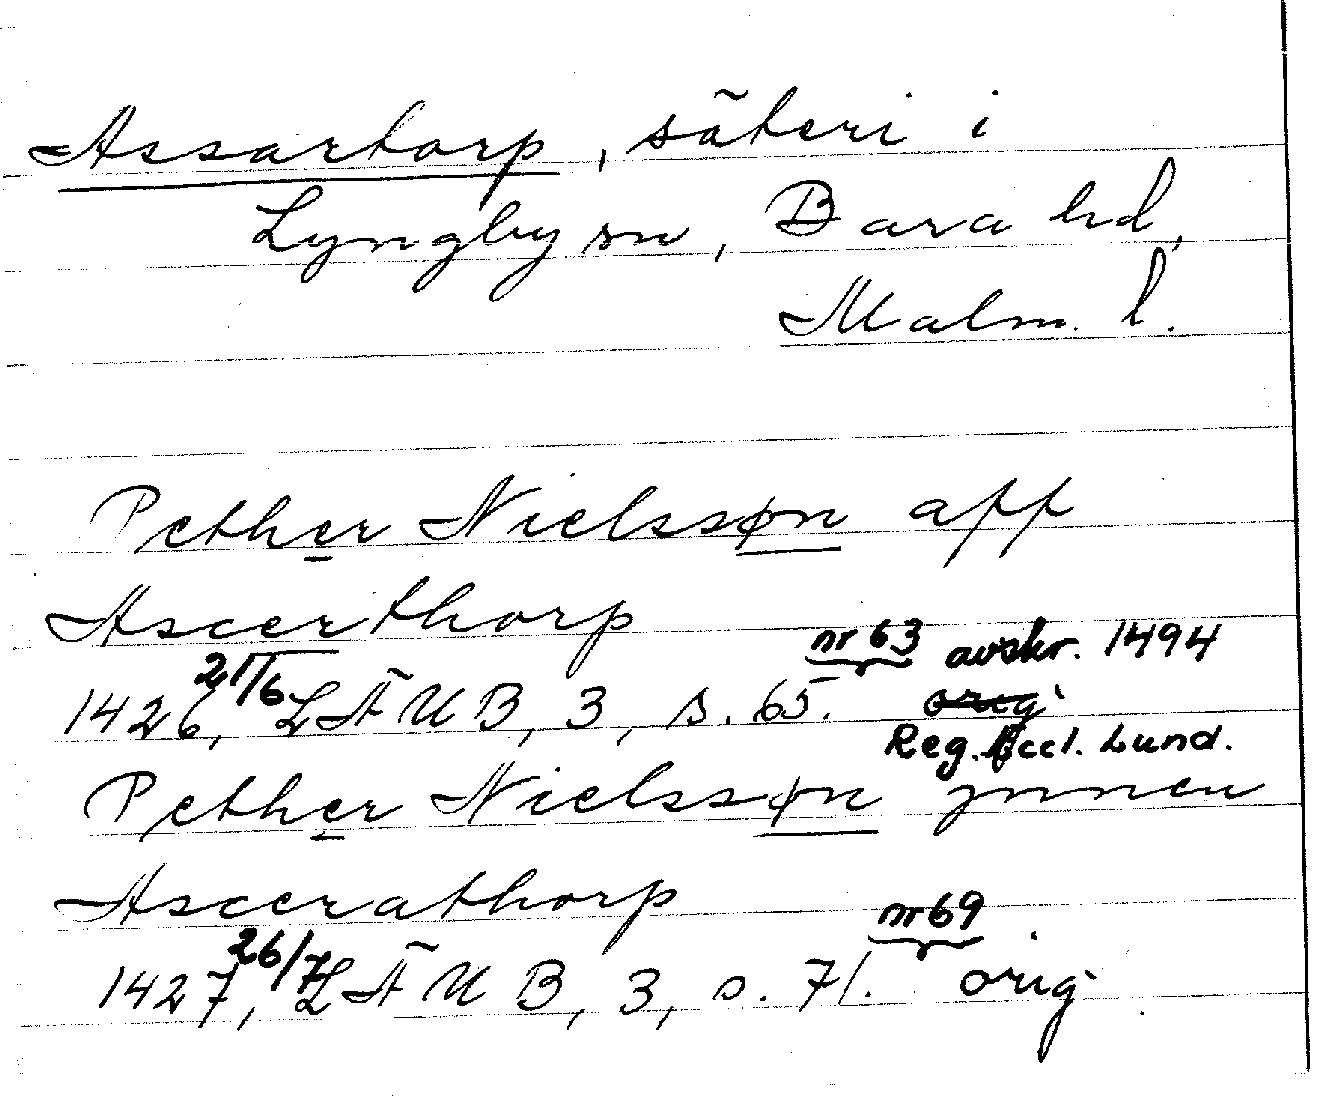 Assartorp, säteri i
Lyngby sn, Bara hd,
Malm. l.
Pether Nielssøn aff
Ascerthorp
nr 63 avskr. 1494
1426 21/6, LÄUB, 3, s. 65. orig
Reg. Eccl. Lund.
Pether Nielssøn jnnen
Ascerathorp
nr 69
1427 26/7, LÄUB, 3, s. 71. orig